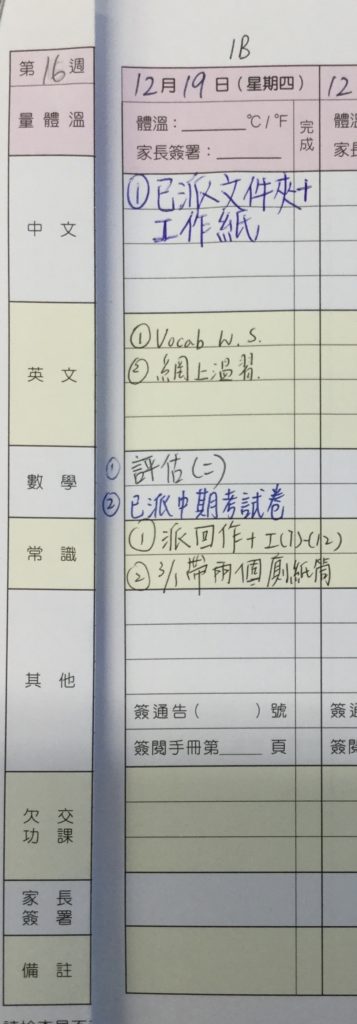 1B
第16週
12月19日(星期四)
12
量體溫
體溫：______℃/℉
家長簽署：______
完成
體溫
家長
中文
①已派文件夾+
工作紙
英文
①Vocab W.S.
②網上溫習.
數學
①評估(二)
②已派中期考試卷
常識
①派回作+工(7)-(12)
②3/1帶兩個廁紙筒
其他
簽通告(　　)號
簽通
簽閱手冊第____頁
簽閱
欠交
功課
家長
簽署
備註